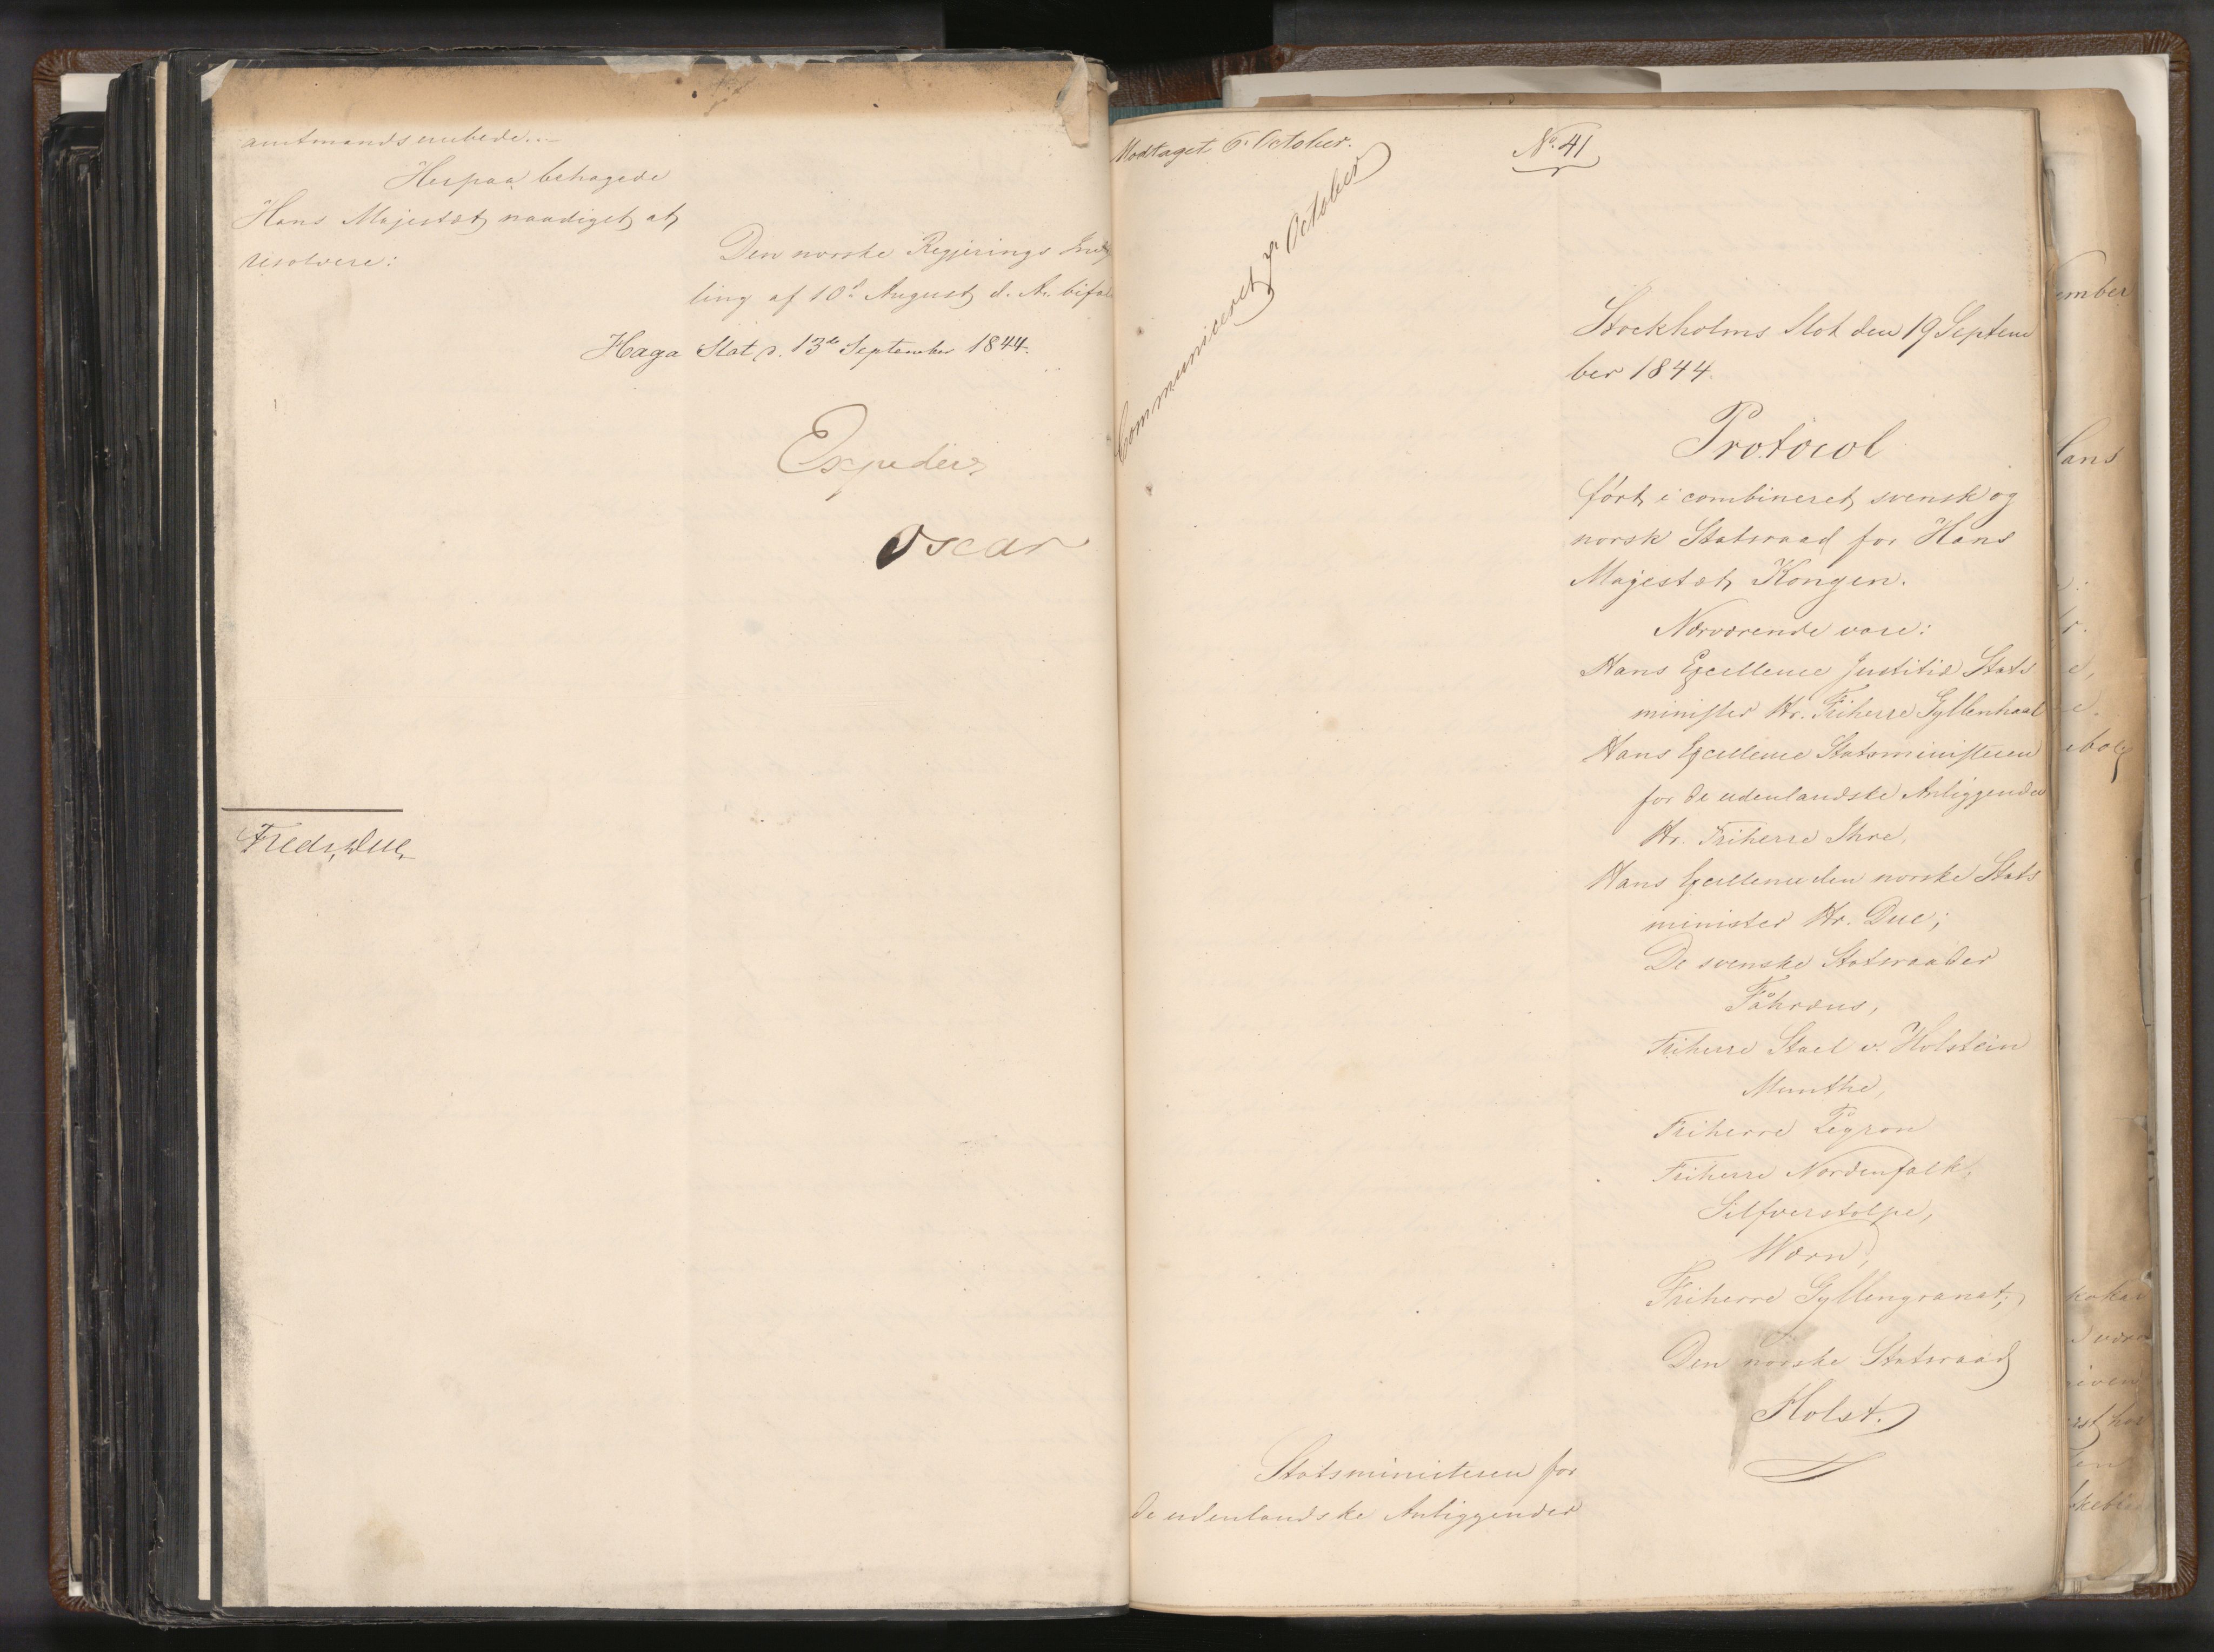 amtmandsembede.
Herpaa behagede
Hans Majestæt naadigst at
resolvere:
Den norske Regjerings
ling af 10d August d. A.
Haga Slot d. 13de September 1844.
Expeder
Oscar
Fredr. Due.
Modtaget 6 October.
Communiceret October
No. 41
Stockholms Slot den 19 Septem
ber 1844.
Protocol
ført i combineret svensk og
norsk Statsraad for Hans
Majestæt Kongen.
Nærværende vare:
Hans Excellence Justitiæ Stats
minister Hr. Friherre Gyllenhaal
Hans Excellence Statsministeren
for de udenlandske Anliggender
Hr. Friherre Ihre,
Hans Excellence den norske Stats
minister Hr. Due;
De svenske Statsraader
Fåhræus,
Friherre Stael v. Holstein
Munthe,
Friherre Peyron
Friherre Nordenfalk,
Silfverstolpe,
Wærn,
Friherre Gyllengranat;
Den norske Statsraad
Holst.
Statsministeren for
de udenlandske Anliggender